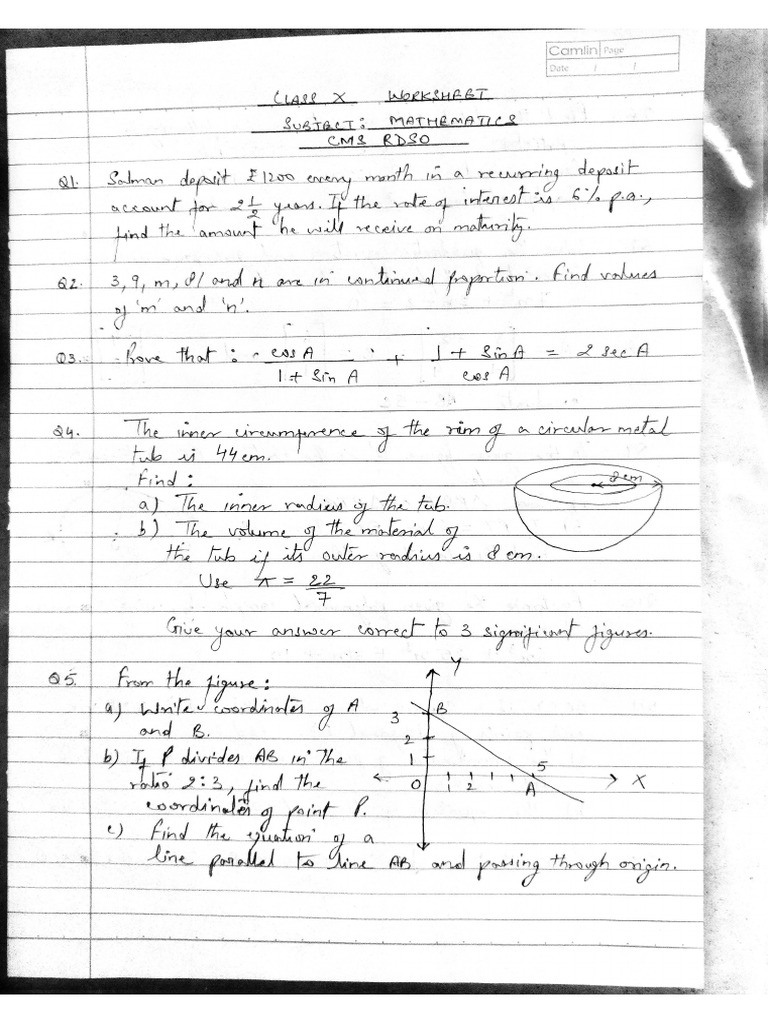 Camlin Page
Date / /
CLASS X WORKSHEET
SUBJECT: MATHEMATICS
CMS RDSO
Q1. Salman deposit ₹1200 every month in a recurring deposit
account for 2 1/2 years. If the rate of interest is 6% p.a.,
find the amount he will receive on maturity.
Q2. 3, 9, m, 81 and n are in continued proportion. Find values
of 'm' and 'n'.
Q3. Prove that : cos A / 1 + sin A + 1 + sin A / cos A = 2 sec A
Q4. The inner circumference of the rim of a circular metal
tub is 44 cm.
Find :
8 cm
a) The inner radius of the tub.
b) The volume of the material of
the tub if its outer radius is 8 cm.
Use π = 22/7
Give your answer correct to 3 significant figures.
Q5. From the figure :
a) Write coordinates of A
and B.
b) If P divides AB in the
ratio 2:3, find the
coordinates of point P.
c) Find the equation of a
line parallel to line AB and passing through origin.
Y
3 B
2
1
5
O 1 2 A X